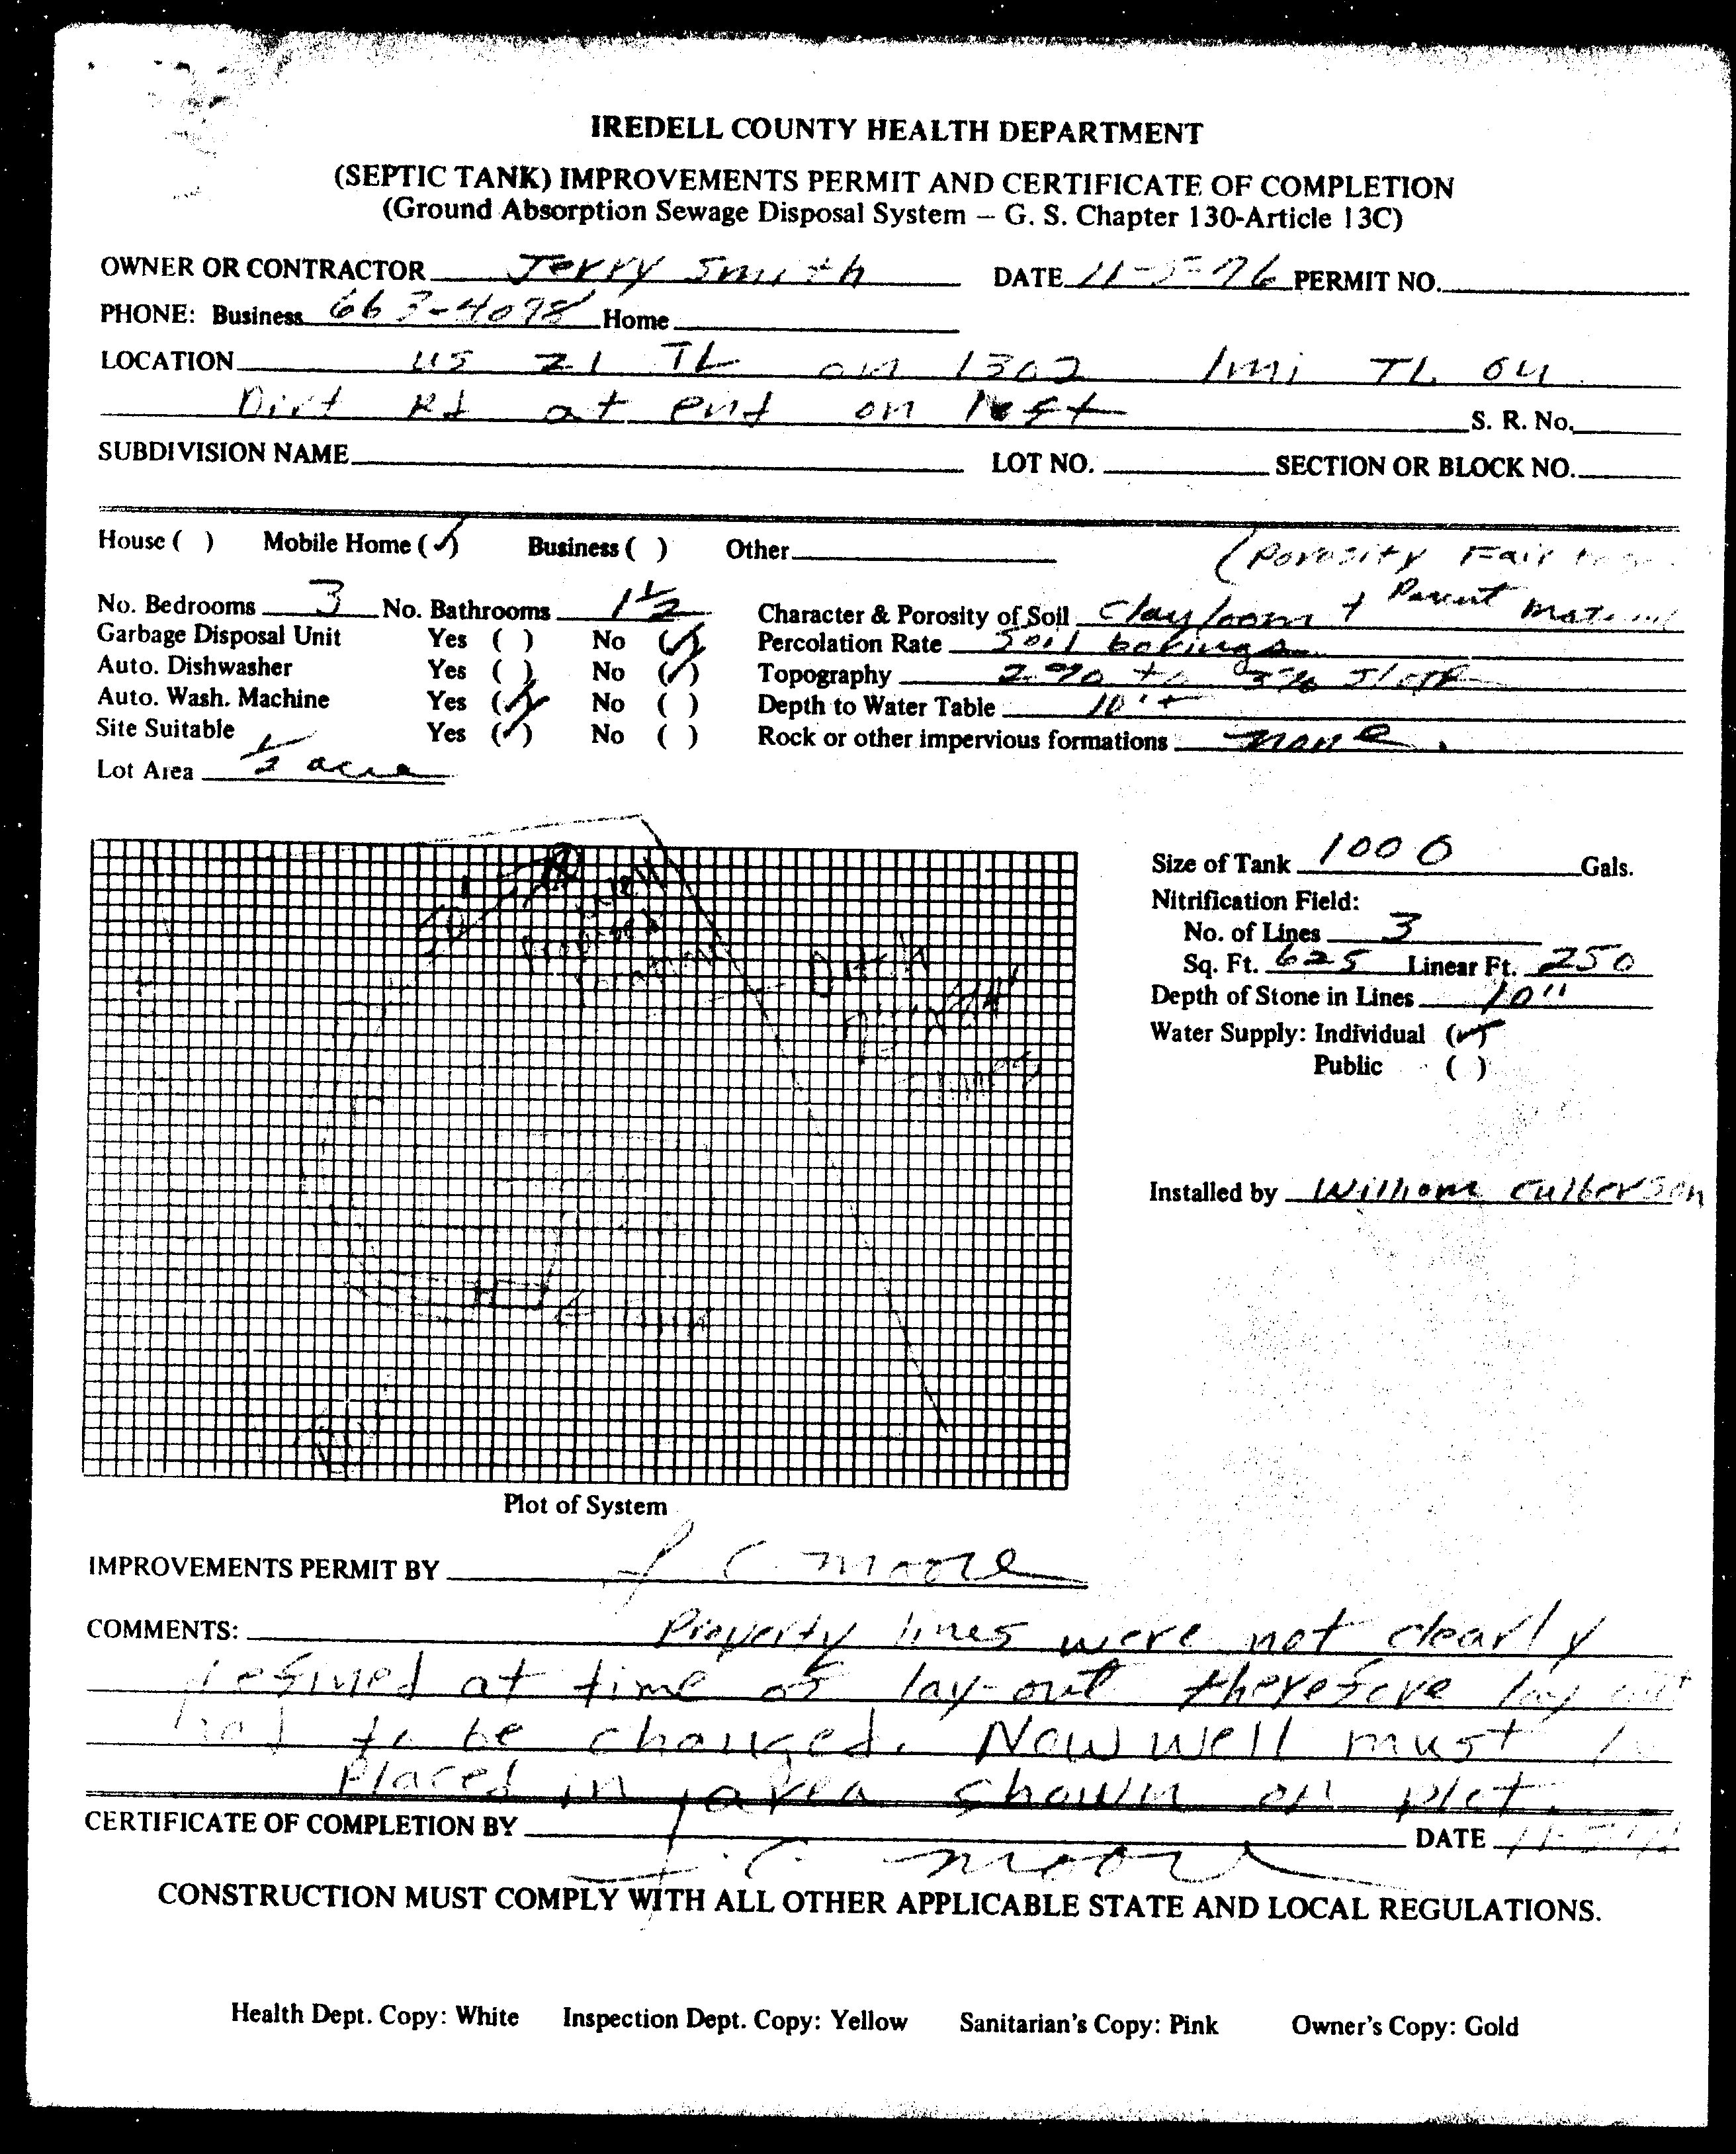 IREDELL COUNTY HEALTH DEPARTMENT
(SEPTIC TANK) IMPROVEMENTS PERMIT AND CERTIFICATE OF COMPLETION
(Ground Absorption Sewage Disposal System – G. S. Chapter 130-Article 13C)
OWNER OR CONTRACTOR Jerry Smith DATE 11-5-76 PERMIT NO.
PHONE: Business 663-4098 Home
LOCATION US 21 TL on 1302 1mi TL on
Dirt Rd at end on left S. R. No.
SUBDIVISION NAME LOT NO. SECTION OR BLOCK NO.
House ( ) Mobile Home (✓) Business ( ) Other
(Porosity Fair
No. Bedrooms 3 No. Bathrooms 1 1/2 Character & Porosity of Soil Clay loam + Parent Material
Garbage Disposal Unit Yes ( ) No (✓) Percolation Rate Soil borings
Auto. Dishwasher Yes ( ) No (✓) Topography 2% to 3% slope
Auto. Wash. Machine Yes (✓) No ( ) Depth to Water Table 10'+
Site Suitable Yes (✓) No ( ) Rock or other impervious formations none.
Lot Area 1/2 acre
Size of Tank 1000 Gals.
Nitrification Field:
No. of Lines 3
Sq. Ft. 625 Linear Ft. 250
Depth of Stone in Lines 10"
Water Supply: Individual (✓)
Public ( )
Installed by William Culberson
Plot of System
IMPROVEMENTS PERMIT BY J C Moore
COMMENTS: Property lines were not clearly
defined at time of lay-out therefore lay out
had to be changed. Now well must
placed in area shown on plot.
CERTIFICATE OF COMPLETION BY J. C. Moore DATE
CONSTRUCTION MUST COMPLY WITH ALL OTHER APPLICABLE STATE AND LOCAL REGULATIONS.
Health Dept. Copy: White Inspection Dept. Copy: Yellow Sanitarian's Copy: Pink Owner's Copy: Gold